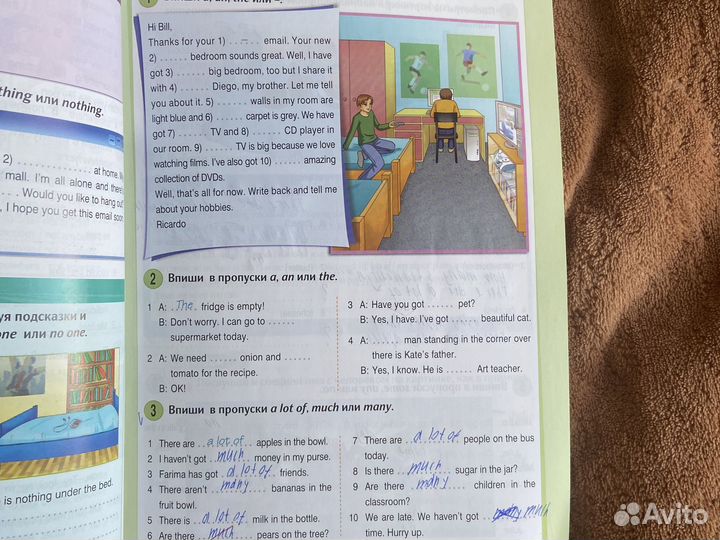 1 Впиши a, an, the или –.
Hi Bill,
Thanks for your 1) ..–.... email. Your new
2) ...... bedroom sounds great. Well, I have
got 3) ...... big bedroom, too but I share it
with 4) ...... Diego, my brother. Let me tell
you about it. 5) ...... walls in my room are
light blue and 6) ...... carpet is grey. We have
got 7) ...... TV and 8) ...... CD player in
our room. 9) ...... TV is big because we love
watching films. I've also got 10) ...... amazing
collection of DVDs.
Well, that's all for now. Write back and tell me
about your hobbies.
Ricardo
thing или nothing.
2) .............. at home.
mall. I'm all alone and there
.... Would you like to hang out
, I hope you get this email soon
уя подсказки и
one или no one.
is nothing under the bed.
2 Впиши в пропуски a, an или the.
1 A: .The. fridge is empty!
B: Don't worry. I can go to ......
supermarket today.
2 A: We need ...... onion and ......
tomato for the recipe.
B: OK!
3 A: Have you got ...... pet?
B: Yes, I have. I've got ...... beautiful cat.
4 A: ...... man standing in the corner over
there is Kate's father.
B: Yes, I know. He is ...... Art teacher.
3 Впиши в пропуски a lot of, much или many.
1 There are ..a lot of... apples in the bowl.
2 I haven't got ..much.... money in my purse.
3 Farima has got ..a lot of... friends.
4 There aren't ..many.... bananas in the
fruit bowl.
5 There is ..a lot of... milk in the bottle.
6 Are there ...much.... pears on the tree?
7 There are ..a lot of... people on the bus
today.
8 Is there ..much.... sugar in the jar?
9 Are there ..many.... children in the
classroom?
10 We are late. We haven't got ..many much
time. Hurry up.
Avito